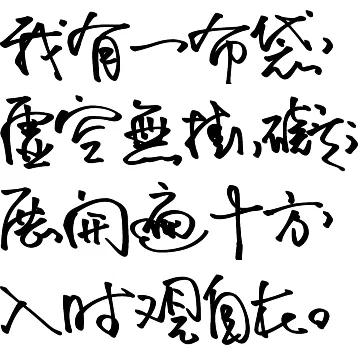 我有一布袋，
虚空無掛礙，
展開遍十方，
入时观自在。